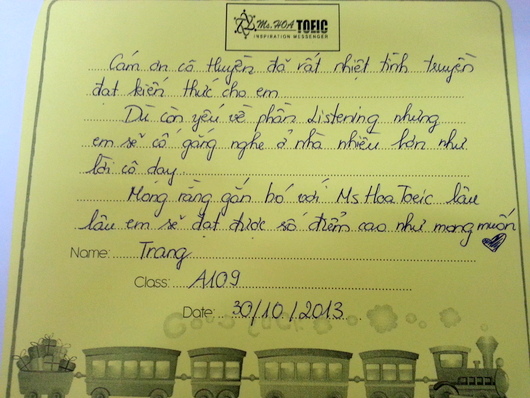 Ms.HOA TOEIC
INSPIRATION MESSENGER
Cám ơn cô Huyền đã rất nhiệt tình truyền
đạt kiến thức cho em
Dù còn yếu về phần Listening nhưng
em sẽ cố gắng nghe ở nhà nhiều hơn như
lời cô dạy
Mong rằng gắn bó với Ms Hoa Toeic lâu
lâu em sẽ đạt được số điểm cao như mong muốn
Name: Trang
Class: A109
Date: 30/10/2013